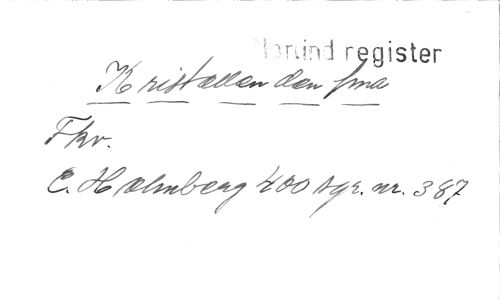 register
Kristallen den fina
Fkv.
E. Holmberg 400 hgr. nr. 387